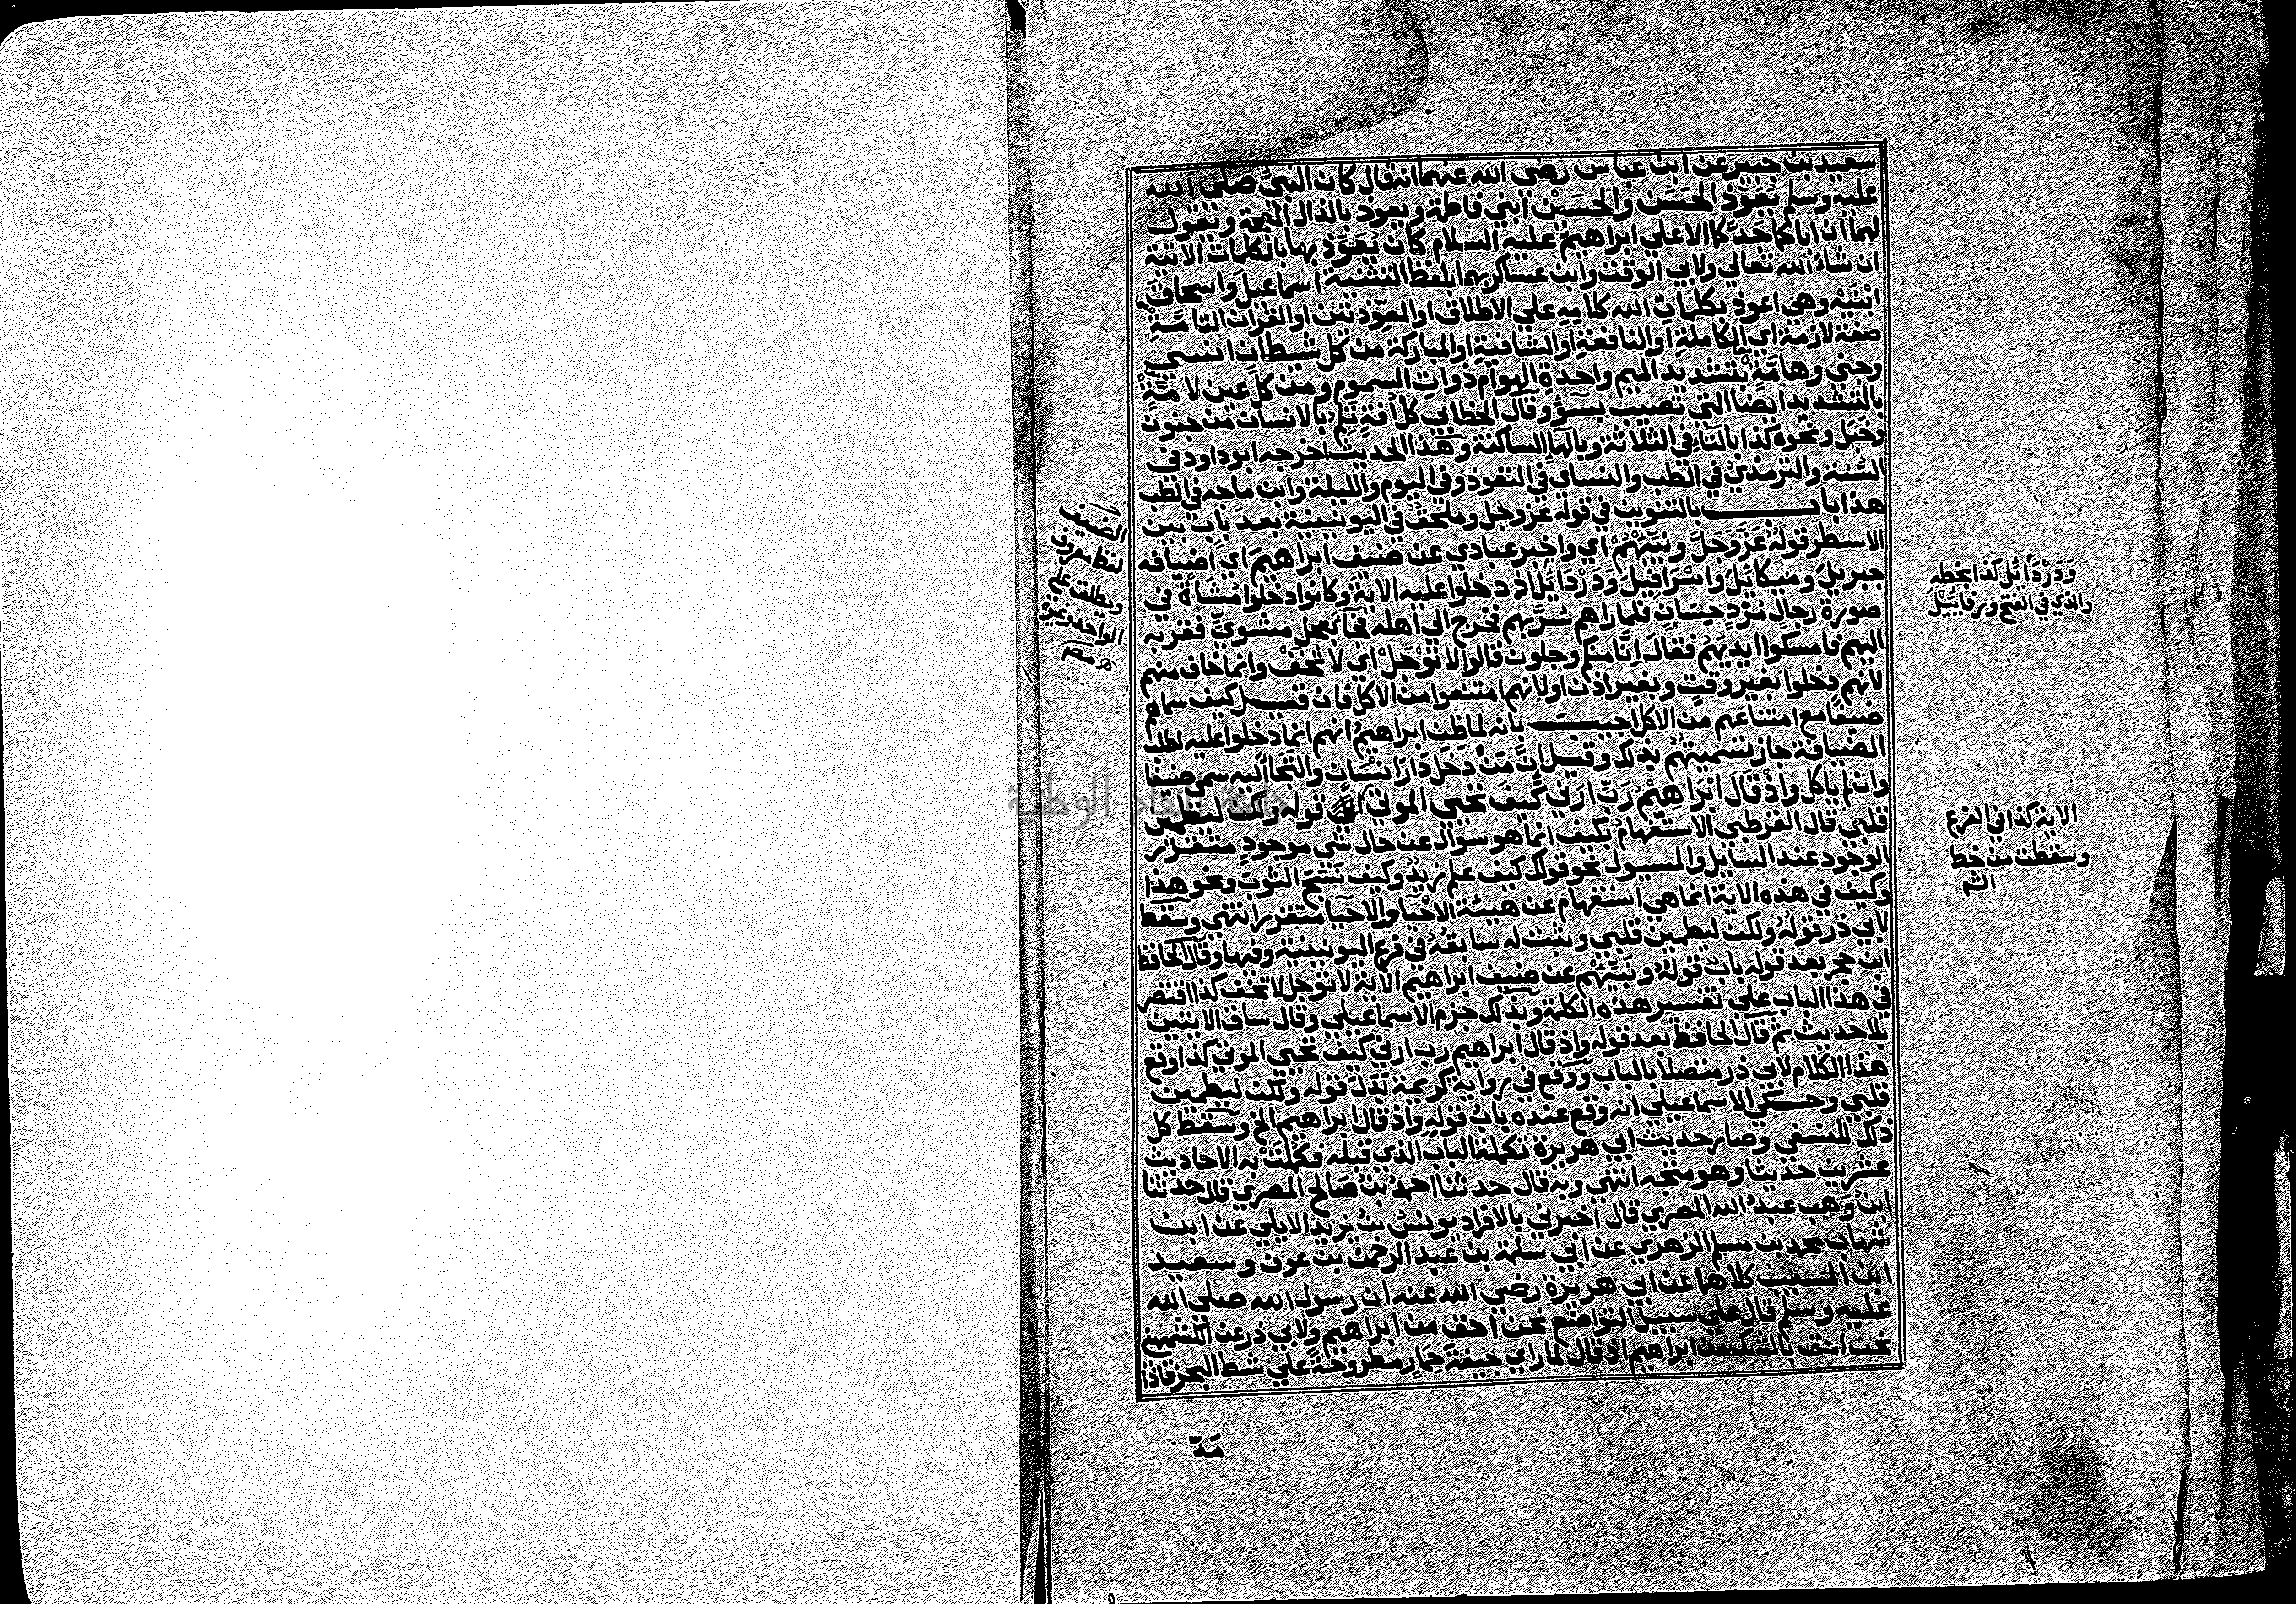 سعيد بن جبير عن ابن عباس رضي الله عنهما انه قال كان النبي صلي الله
عليه وسلم يُعَوِّذ الحَسَن والحسَين ابني فاطمة ويعوذ بالذال المعجمة ويقول
لهما ان اباكما جَدَّكما الاعلي ابراهيم عليه السلام كان يُعَوِّذ بها بالكلمات الاتية
ان شاء الله تعالي ولابي الوقت وابن عساكر بهما بلفظ التثنية اسماعيل واسحاق
ابْنَيْه وهي اعوذ بكلمات الله كلامِهِ علي الاطلاق او المعوّذتين او القران التامّةِ
صفة لازمة اي الكاملةِ او النافعةِ او الشافيةِ او المباركة من كل شيطان انسي
وجني وهامّةٍ بتشديد الميم واحدة الهوام ذوات السموم ومن كل عين لامّةٍ
بالتشديد ايضا التي تصيب بسوء وقال الخطابي كل افةٍ تلم بالانسان من جنون
وخبل ونحوه كذا بالتاء في الثلاثة وبالهاء الساكنة وهذا الحديث اخرجه ابو داود في
السُّنة والترمذي في الطب والنساي في التعوذ وفي اليوم والليلة وابن ماجه في الطب
هذا باب بالتنوين في قوله عز وجل وملحق في اليونينية بعد باب بين
الاسطر قوله عَزَّ وَجَلَّ ونبّئهُمْ اي واخبر عبادي عن ضيف ابراهيم اي اضيافه
جبريل وميكائل واسْرَافيل وَدَرْدَايُل اذ دخلوا عليه الاية وكانوا دخلوا مُشَاةً في
صورة رجال مُرْدٍ حِسَانٍ فلما راهم سُرَّ بهم فخرج الي اهله فجاء بعجل مشويّ فقربه
اليهم فامسكوا ايديَهُم فقال اِنّا منكم وجلون قالوا لا تَوْجَلْ اي لا تَخَفْ وانما خاف منهم
لانهم دخلوا بغير وقتٍ وبغير اذن او لانهم امتنعوا من الاكل فان قيل كيف سماهم
ضيفًا مع امتناعهم من الاكل اجيب بانه لما ظن ابراهيم انهم انما دخلوا عليه لطلب
الضيافة جاز تسميتهم بذلك وقيل ان مَنْ دَخَلَ دَارَ انسَان والتجأ اليه سمي ضيفا
وان لم ياكل واذْ قال ابْرَاهِيمُ رَبِّ ارني كيفَ تحيي الموتي قوله ولكن ليطمئن
قلبي قال القرطبي الاستفهام بكيف انما هو سوال عن حال شي موجودٍ متقرّرِ
الوجود عند السايل والمسيول نحو قولك كيف عِلم زيد وكيف نسْج الثوب ونحو هذا
وكيف في هذه الاية انما هي استفهام عن هيئة الاحْيَاء والاحيا متقرر انتهي وسقط
لابي ذر قولُهُ ولكن ليطمين قلبي وثبت له سابقُه في فرع اليونينية وفيها وقال الحافظ
ابن حجر بعد قوله باب قولهُ ونَبِّئهُم عن ضيف ابراهيم الاية لا توجل لا تخف كذا اقتصر
في هذا الباب علي تفسير هذه الكلمة وبذلك جزم الاسماعيلي وقال ساق الايتين
بلا حديث ثم قال الحافظ بعد قوله واذ قال ابراهيم رب ارني كيف تحيي الموتي كذا وقع
هذا الكلام لابي ذر متصلا بالباب ووقع في رواية كريمة بَدَلَ قوله ولكن ليطمين
قلبي وحكي الاسماعيلي انه وقع عنده بابُ قوله واذ قال ابراهيم الخ وسقط كل
ذلك للنسفي وصار حديث ابي هريرة تكملة الباب الذي قبله فكمُلَتْ به الاحاديث
عشرين حديثا وهو متجه انتهي وبه قال حدثنا احمدُ بنُ صَالح المصري قال حدثنا
ابنُ وَهب عبدُ الله المصري قال اخبرني بالافراد يونسُ بنُ يزيد الايلي عن ابن
شهاب محمد بن مسلم الزهري عن ابي سلمة بن عَبد الرحمن بن عوف وسعيد
ابن المسيب كلاهما عن ابي هريرة رضي الله عنه ان رسول الله صلي الله
عليه وسلم قال علي سبيل التواضع نحن احق من ابراهيم ولابي ذر عن الكشميهني
نحن احق بالشك من ابراهيم اذ قال لما راي جيفةَ حِمارٍ مطروحةً علي شط البحر فاذا
مَدّ
الضيف
لفظ معروف
ويطلق علي
الواحد وغيره
وَدَرْدَايُل كذا بخطه
والذي في الفتح ورفاييل
الاية كذا في الفرع
وسقطت من خط
الش
الوطنية